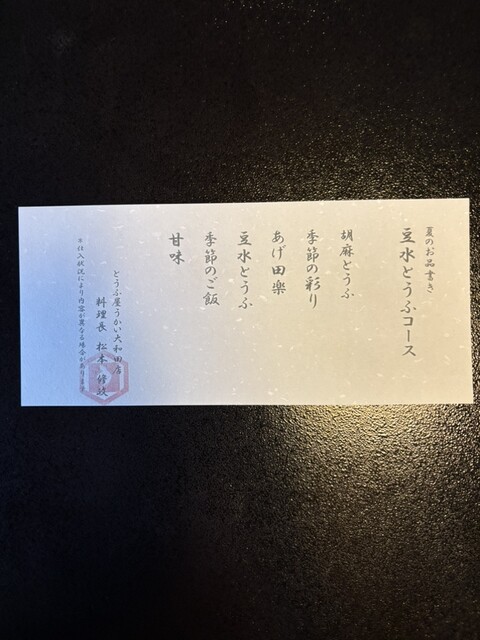 夏のお品書き
豆水とうふコース
胡麻とうふ
季節の彩り
あげ田楽
豆水とうふ
季節のご飯
甘味
とうふ屋うかい大和田店
料理長 松本 修岐
※仕入状況により内容が異なる場合があります